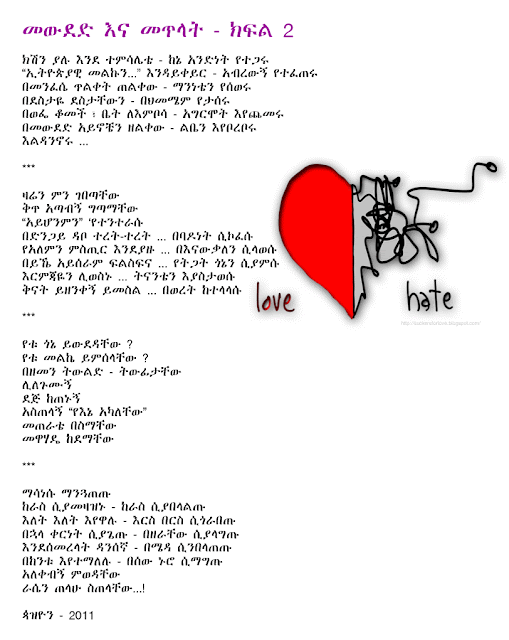 መውደድ እና መጥላት - ክፍል 2
ክሽን ያሉ እንደ ተምሳሌቴ - ከኔ አንድነት የተጋሩ
“ኢትዮጵያዊ መልኩን...” እንዳይቀይር - አብረውኝ የተፈጠሩ
በመንፈሴ ጥልቀት ጠልቀው - ማንነቴን የሰወሩ
በደስታዬ ደስታቸውን - በህመሜም የታሰሩ
በወፌ ቆመች ፣ ቤት ለእምቦሳ - አግርሞት እየጨመሩ
በመውደድ አይኖቼን ዘልቀው - ልቤን እየቦረቦሩ
እልዳንኖሩ ...
***
ዛሬን ምን ገበጣቸው
ቅጥ አጣብኝ ግጣማቸው
“አይሆንምን” የተንተራሱ
በድንጋይ ዳቦ ተረት-ተረት ... በባዶነት ሲኮፈሱ
የአለምን ምስጢር እንደያዙ ... በእናውቃለን ሲላወሱ
በይኼ አይሰራም ፍልስፍና ... የትጋት ጎኔን ሲያምሱ
እርምጃዬን ሊወስኑ ... ትናንቴን እያስታወሱ
ቅናት ይዘንቀኝ ይመስል ... በወረት ከተላላሱ
love hate
***
የቱ ጎኔ ይውደዳቸው ?
የቱ መልኬ ይምሰላቸው ?
በዘመን ትውልድ - ትውፊታቸው
ሊለጉሙኝ
ደጅ ከጠኑኝ
አስጠላኝ “የእኔ አካለቸው”
መጠራቴ በስማቸው
መዋሃዴ ከደማቸው
***
ማሳነሱ ማንጓጠጡ
ከራስ ሲያመዛዝኑ - ከራስ ሲያበላልጡ
እለት እለት እየዋሉ - እርስ በርስ ሲጎራበጡ
በኋላ ቀርነት ሲያጌጡ - በዘራቸው ሲያላግጡ
እንደሰመረላት ዳንሰኛ - በሜዳ ሲንበላጠጡ
በከንቱ እየተማለሉ - በሰው ኑሮ ሲማግጡ
አለቀብኝ ምወዳቸው
ራሴን ጠላሁ ስጠላቸው...!
ጿዝዮን - 2011